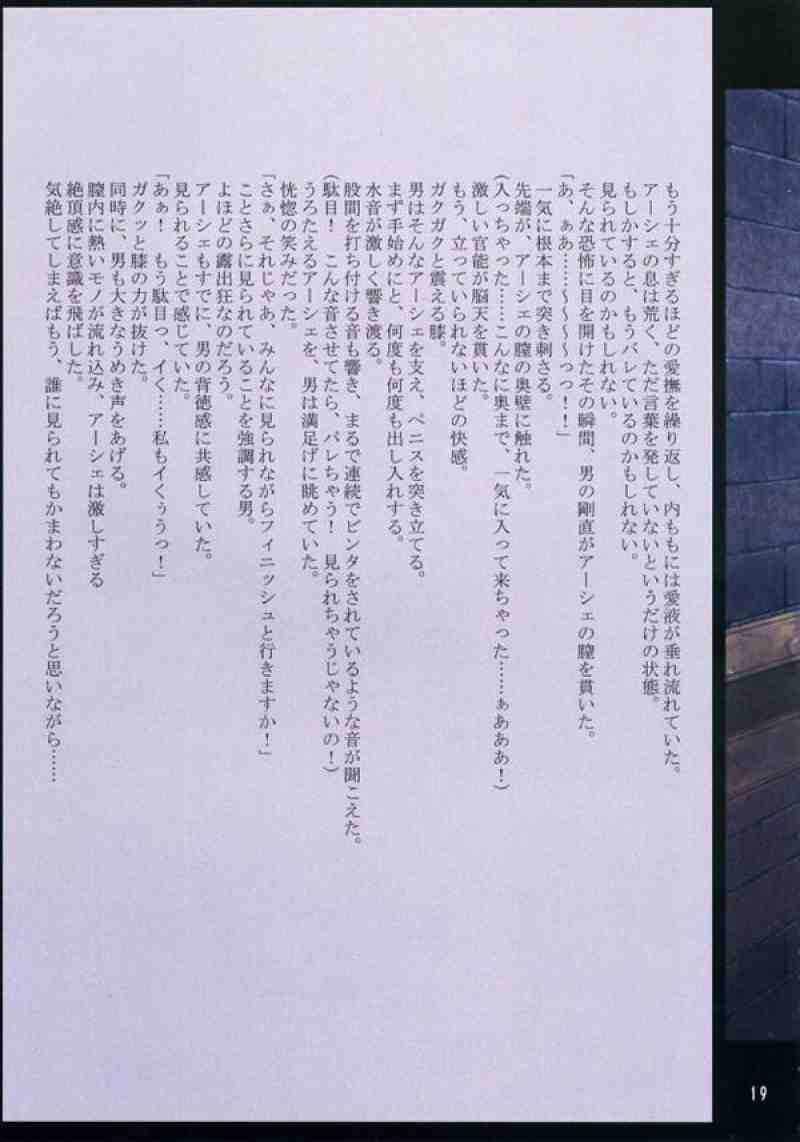 もう十分すぎるほどの愛撫を繰り返し、内ももには愛液が垂れ流れていた。
アーシェの息は荒く、ただ言葉を発していないというだけの状態。
もしかすると、もうバレているのかもしれない。
見られているのかもしれない。
そんな恐怖に目を開けたその瞬間、男の剛直がアーシェの膣を貫いた。
「あ、ぁあ……～～～～っ！！」
一気に根本まで突き刺さる。
先端が、アーシェの膣の奥壁に触れた。
(入っちゃった……こんなに奥まで、一気に入って来ちゃった……ぁあああ！)
激しい官能が脳天を貫いた。
もう、立っていられないほどの快感。
ガクガクと震える膝。
男はそんなアーシェを支え、ペニスを突き立てる。
まず手始めにと、何度も何度も出し入れする。
水音が激しく響き渡る。
股間を打ち付ける音も響き、まるで連続でビンタをされているような音が聞こえた。
(駄目！　こんな音させてたら、バレちゃう！　見られちゃうじゃないの！)
うろたえるアーシェを、男は満足げに眺めていた。
恍惚の笑みだった。
「さぁ、それじゃあ、みんなに見られながらフィニッシュと行きますか！」
ことさらに見られていることを強調する男。
よほどの露出狂なのだろう。
アーシェもすでに、男の背徳感に共感していた。
見られることで感じていた。
「あぁ！　もう駄目っ、イく……私もイくぅうっ！」
ガクッと膝の力が抜けた。
同時に、男も大きなうめき声をあげる。
膣内に熱いモノが流れ込み、アーシェは激しすぎる
絶頂感に意識を飛ばした。
気絶してしまえばもう、誰に見られてもかまわないだろうと思いながら……
19